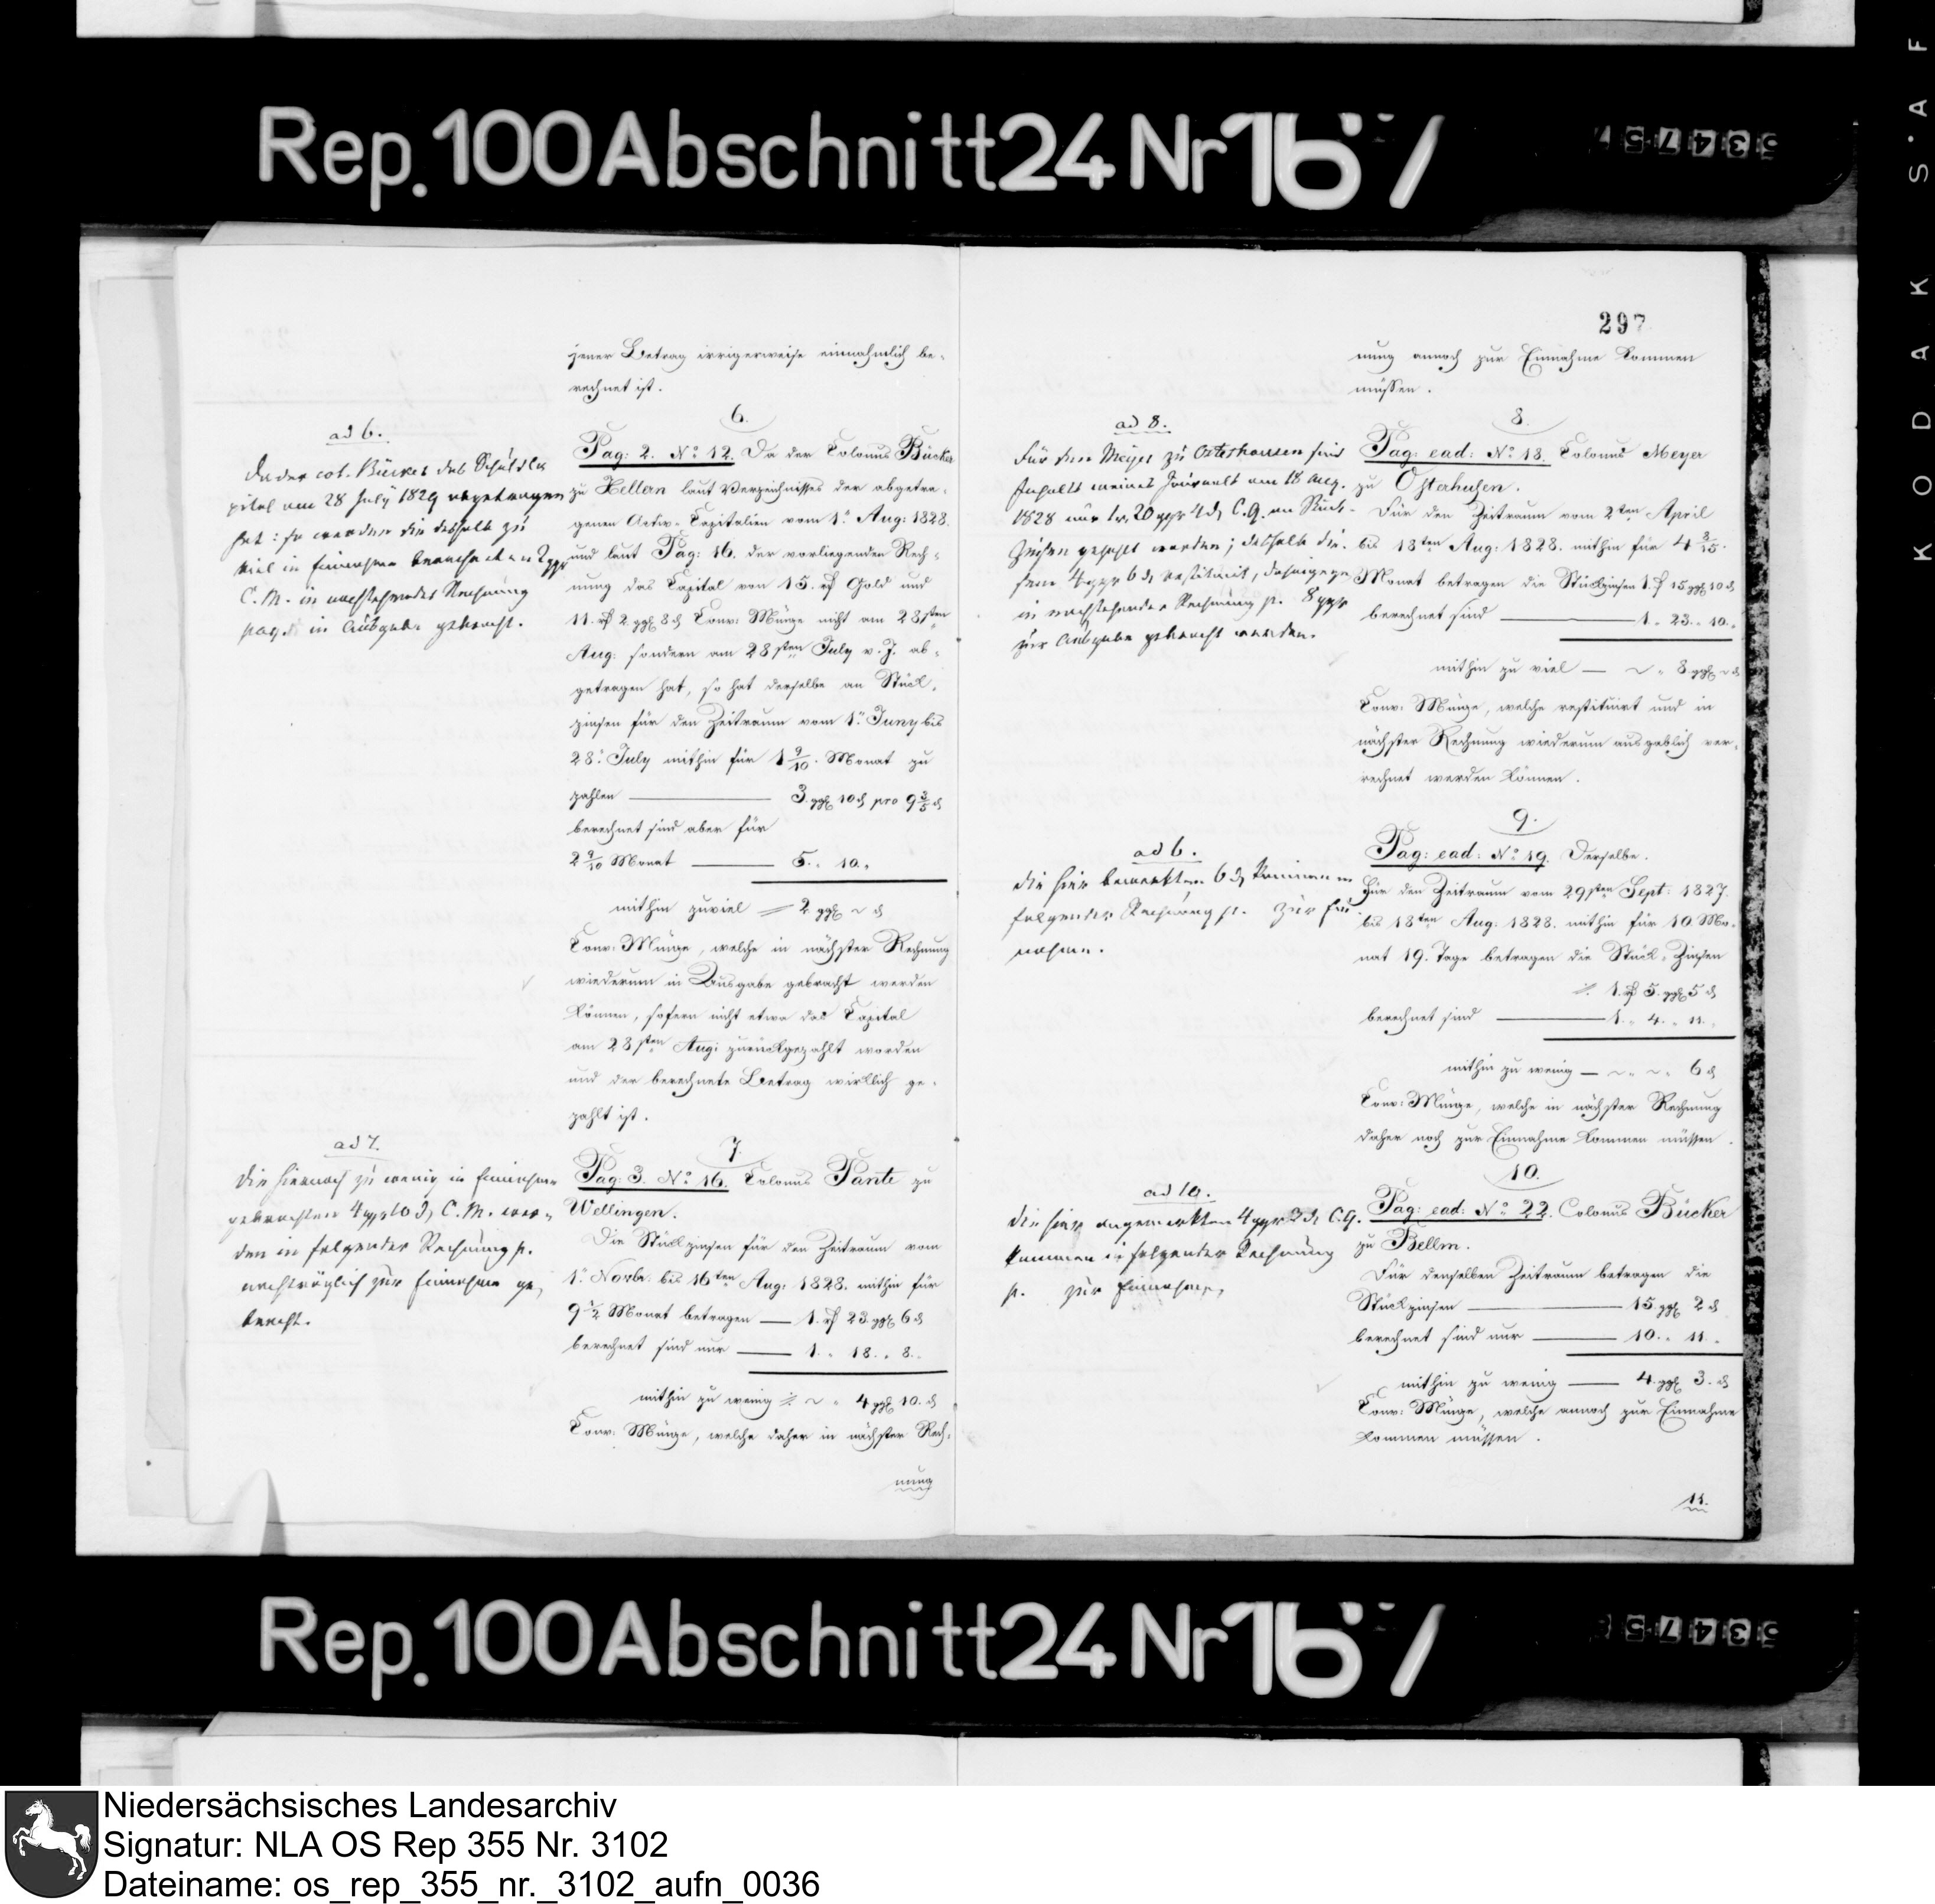 Rep. 100 Abschnitt 24 Nr 167
53475
KODAK S.AF
jener Betrag irrigerweise einnahmlich be-
rechnet ist.
ad 6.
Da der col. Bücker das Schuldka
pital am 28 July 1829 abgetragen
hat: so werden die deshalb zu
viel in Einnahme berechneten 2 ggr
C. M. in nachstehender Rechnung
pag. in Ausgabe gebracht.
6.
Pag: 2. No 12. Da der Colonus Bücker
zu Hellern laut Verzeichnisses der abgetra-
genen Activ-Capitalien vom 1. Aug: 1828.
und laut Pag: 16. der vorliegenden Rech-
nung das Capital von 15. rf Gold und
11. rf 2. ggl 8 d Conv: Münze nicht am 28sten
Aug: sondern am 28sten July v. J. ab-
getragen hat, so hat derselbe an Stück-
zinsen für den Zeitraum vom 1. Juny bis
28. July mithin für 1 9/10. Monat zu
zahlen — 3. ggl 10 d pro 9 3/5 d
berechnet sind aber für
2 9/10 Monat — 5. „ 10. „
mithin zuviel — 2 ggl ~ d
Conv: Münze, welche in nächster Rechnung
wiederum in Ausgabe gebracht werden
können, sofern nicht etwa das Capital
am 28sten Aug: zurückgezahlt worden
und der berechnete Betrag wirklich ge-
zahlt ist.
ad 7.
Die hiernach zu wenig in Einnahme
gebrachten 4 ggr 10 d C. M. wer-
den in folgender Rechnung p.
nachträglich zur Einnahme ge-
bracht.
7.
Pag: 3. No 16. Colonus Pante zu
Wellingen.
Die Stückzinsen für den Zeitraum vom
1. Novbr. bis 16ten Aug: 1828. mithin für
9 1/2 Monat betragen — 1. rf 23. ggl 6 d
berechnet sind nur — 1. „ 18. „ 8. „
mithin zu wenig ~ „ 4 ggl 10. d
Conv: Münze, welche daher in nächster Rech-
nung
297
nung annoch zur Einnahme kommen
müssen.
ad 8.
Für den Meyer zu Osterhausen sind
Inhalts meines Journals am 18 Aug.
1828 nur 1 r. 20 ggr 4 d C. G. an Stück-
Zinsen gezahlt worden; deshalb die-
sem 4 ggr 6 d restituirt, dahingegen
in nachstehender Rechnung p. 8 ggr
zur Ausgabe gebracht werden.
8.
Pag: ead: No 18. Colonus Meyer
zu Osterhusen.
Für den Zeitraum vom 2ten April
bis 18ten Aug: 1828. mithin für 4 8/15.
Monat betragen die Stückzinsen 1. rf 15 ggl 10 d
berechnet sind — 1. „ 23. „ 10. „
mithin zu viel — ~ „ 8. ggl ~ d
Conv: Münze, welche restituirt und in
nächster Rechnung wiederum ausgablich ver-
rechnet werden können.
ad 6.
Die hier bemerkten 6 d kommen in
folgender Rechnung p. zur Ein-
nahme.
9.
Pag: ead: No 19. Derselbe.
Für den Zeitraum vom 29sten Sept: 1827.
bis 18ten Aug: 1828. mithin für 10. Mo-
nat 19. Tage betragen die Stück-Zinsen
1. rf 5. ggl 5 d
berechnet sind — 1. „ 4. „ 11. „
mithin zu wenig — ~ „ ~ „ 6 d
Conv: Münze, welche in nächster Rechnung
daher noch zur Einnahme kommen müssen.
ad 10.
Die hier angemerkten 4 ggr 3 d C. G.
kommen in folgender Rechnung
p. zur Einnahme.
10.
Pag: ead: No 22. Colonus Bücker
zu Bellm.
Für denselben Zeitraum betragen die
Stückzinsen — 15. ggl 2 d
berechnet sind nur — 10. „ 11. „
mithin zu wenig — 4. ggl 3. d
Conv: Münze, welche annoch zur Einnahme
kommen müssen.
11.
Rep. 100 Abschnitt 24 Nr 167
53475
Niedersächsisches Landesarchiv
Signatur: NLA OS Rep 355 Nr. 3102
Dateiname: os_rep_355_nr._3102_aufn_0036